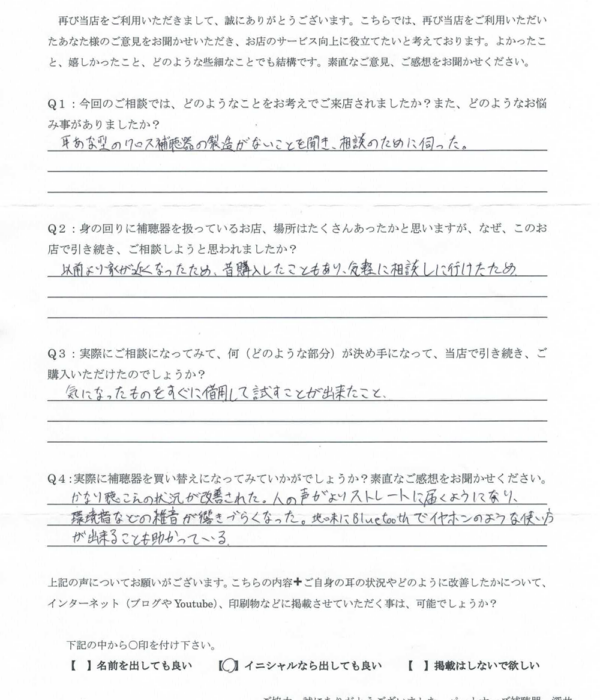 再び当店をご利用いただきまして、誠にありがとうございます。こちらでは、再び当店をご利用いただい
たあなた様のご意見をお聞かせいただき、お店のサービス向上に役立てたいと考えております。よかったこ
と、嬉しかったこと、どのような些細なことでも結構です。素直なご意見、ご感想をお聞かせください。
Q1：今回のご相談では、どのようなことをお考えでご来店されましたか？また、どのようなお悩
み事がありましたか？
耳あな型のクロス補聴器の製造がないことを聞き、相談のために伺った。
Q2：身の回りに補聴器を扱っているお店、場所はたくさんあったかと思いますが、なぜ、このお
店で引き続き、ご相談しようと思われましたか？
以前より家が近くなったため、昔購入したこともあり、気軽に相談しに行けたため
Q3：実際にご相談になってみて、何（どのような部分）が決め手になって、当店で引き続き、ご
購入いただけたのでしょうか？
気になったものをすぐに借用して試すことが出来たこと、
Q4:実際に補聴器を買い替えになってみていかがでしょうか？素直なご感想をお聞かせください。
かなり聴こえの状況が改善された。人の声がよりストレートに届くようになり、
環境音などの雑音が響きづらくなった。地味にBluetoothでイヤホンのような使い方
が出来ることも助かっている。
上記の声についてお願いがございます。こちらの内容＋ご自身の耳の状況やどのように改善したかについて、
インターネット（ブログやYoutube）、印刷物などに掲載させていただく事は、可能でしょうか？
下記の中から〇印を付け下さい。
【 】名前を出しても良い 【〇】イニシャルなら出しても良い 【 】掲載はしないで欲しい